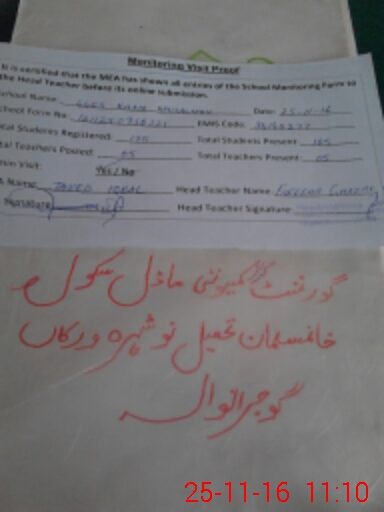 Monitoring Visit Proof
It is certified that the MEA has shown all entries of the School Monitoring Form to
the Head Teacher before its online submission.
School Name Date: 25-11-16
School Form No EMIS Code:
Total Students Registered: Total Students Present:
Total Teachers Posted: 05 Total Teachers Present: 05
Visit: Yes / No
Name JAVED IQBAL Head Teacher Name
Signature Head Teacher Signature
گورنمنٹ گرلز کمیونٹی ماڈل سکول
خانمسلمان تحصیل نوشہرہ ورکاں
گوجرانوالہ
25-11-16 11:10